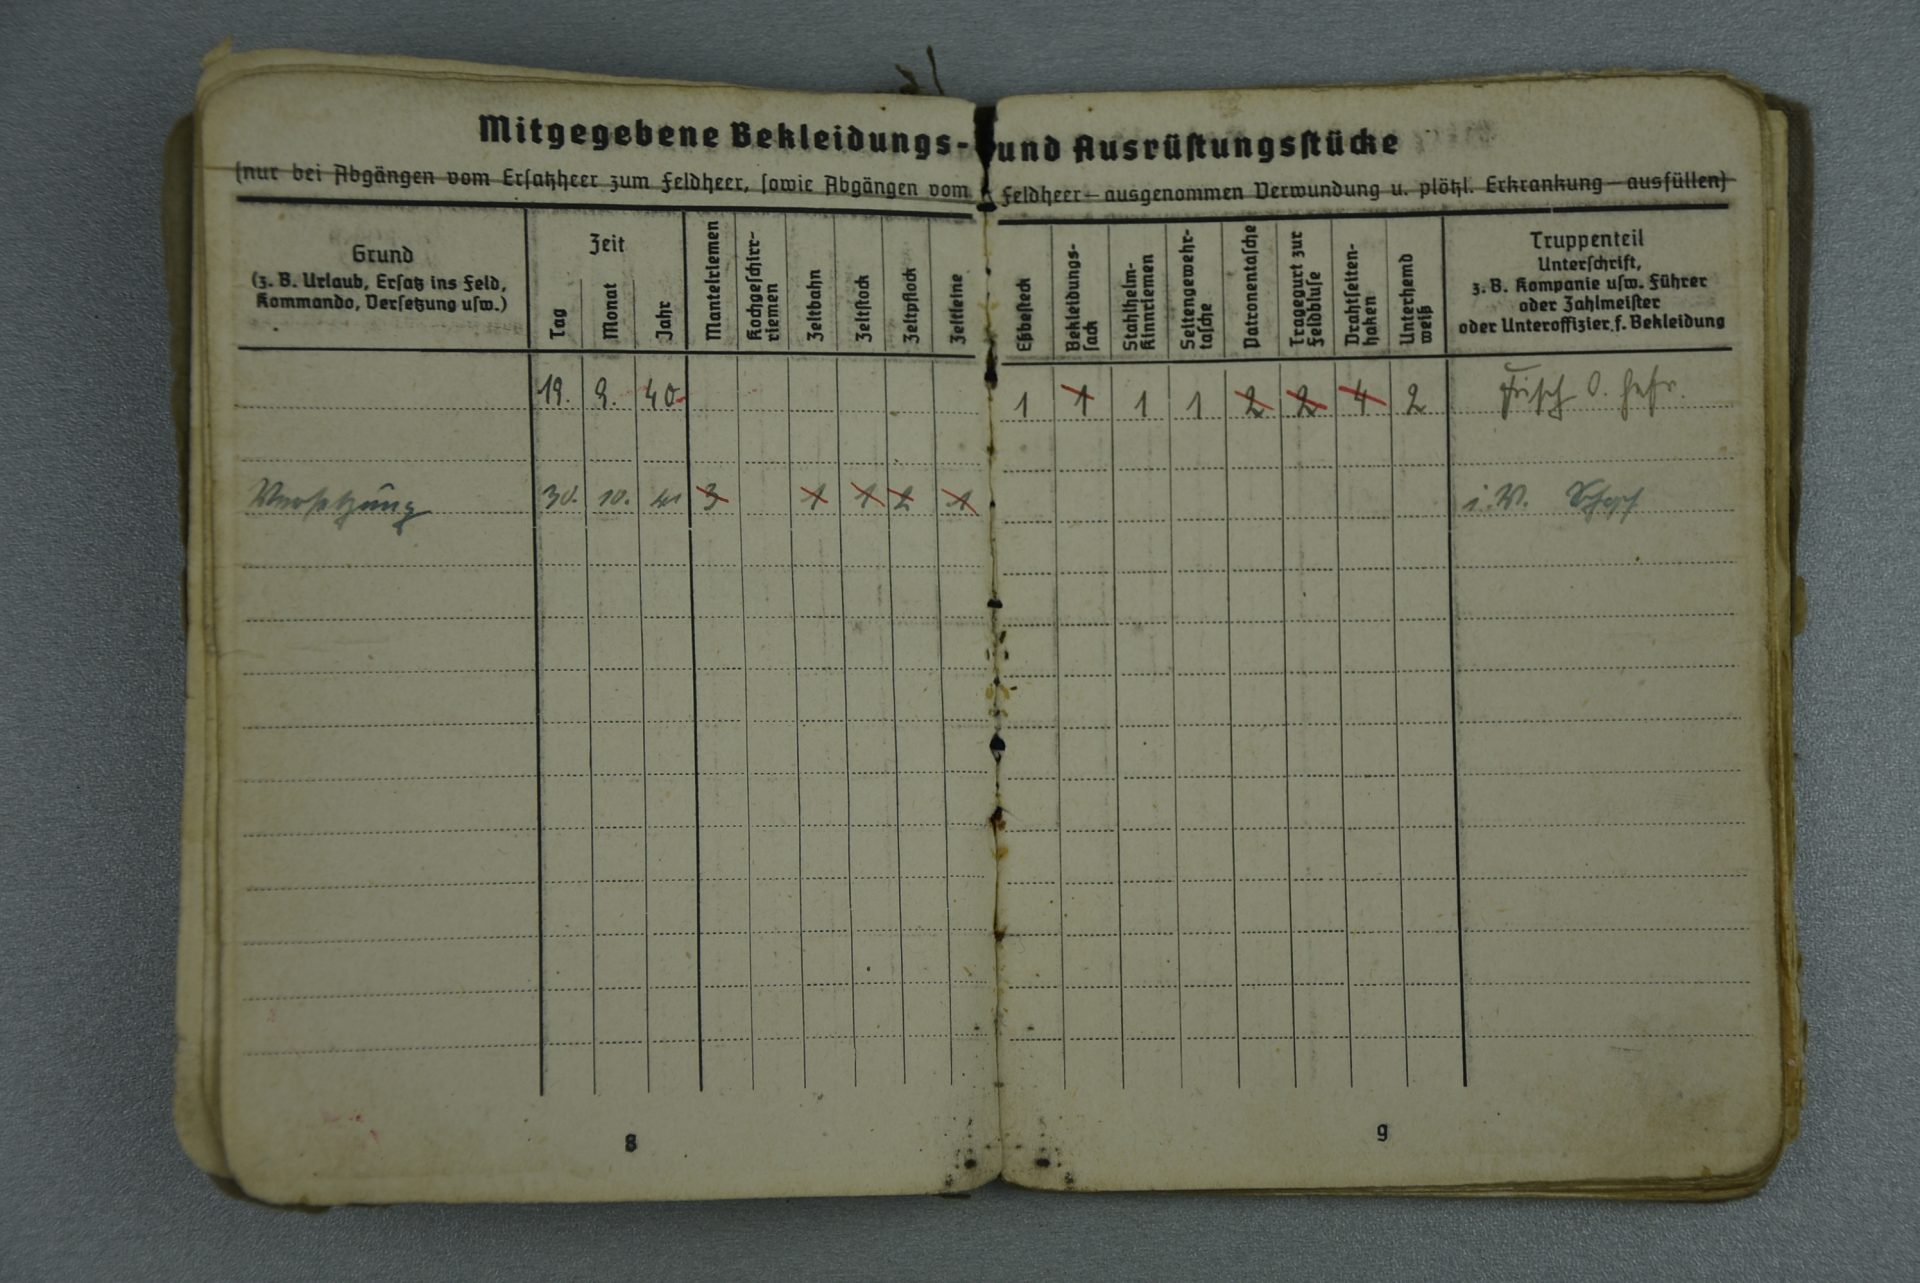 Mitgegebene Bekleidungs- und Ausrüstungsstücke
(nur bei Abgängen vom Ersatzheer zum Feldheer, sowie Abgängen vom Feldheer – ausgenommen Verwundung u. plötzl. Erkrankung – ausfüllen)
Grund
(z. B. Urlaub, Ersatz ins Feld,
Kommando, Versetzung usw.)
Zeit
Tag
Monat
Jahr
Mantelriemen
Kochgeschirr-
riemen
Zeltbahn
Zeltstock
Zeltpflock
Zeltleine
Eßbesteck
Bekleidungs-
sack
Stahlhelm-
Kinnriemen
Seitengewehr-
tasche
Patronentasche
Tragegurt zur
Feldbluse
Drahtseiten-
haken
Unterhemd
weiß
Truppenteil
Unterschrift,
z. B. Kompanie usw. Führer
oder Zahlmeister
oder Unteroffizier f. Bekleidung
19. 9. 40. 1 1 1 1 2 2 4 2 Frisch O. Gefr.
Versetzung 30. 10. 41 3 1 1 2 1 i.V.
8
9